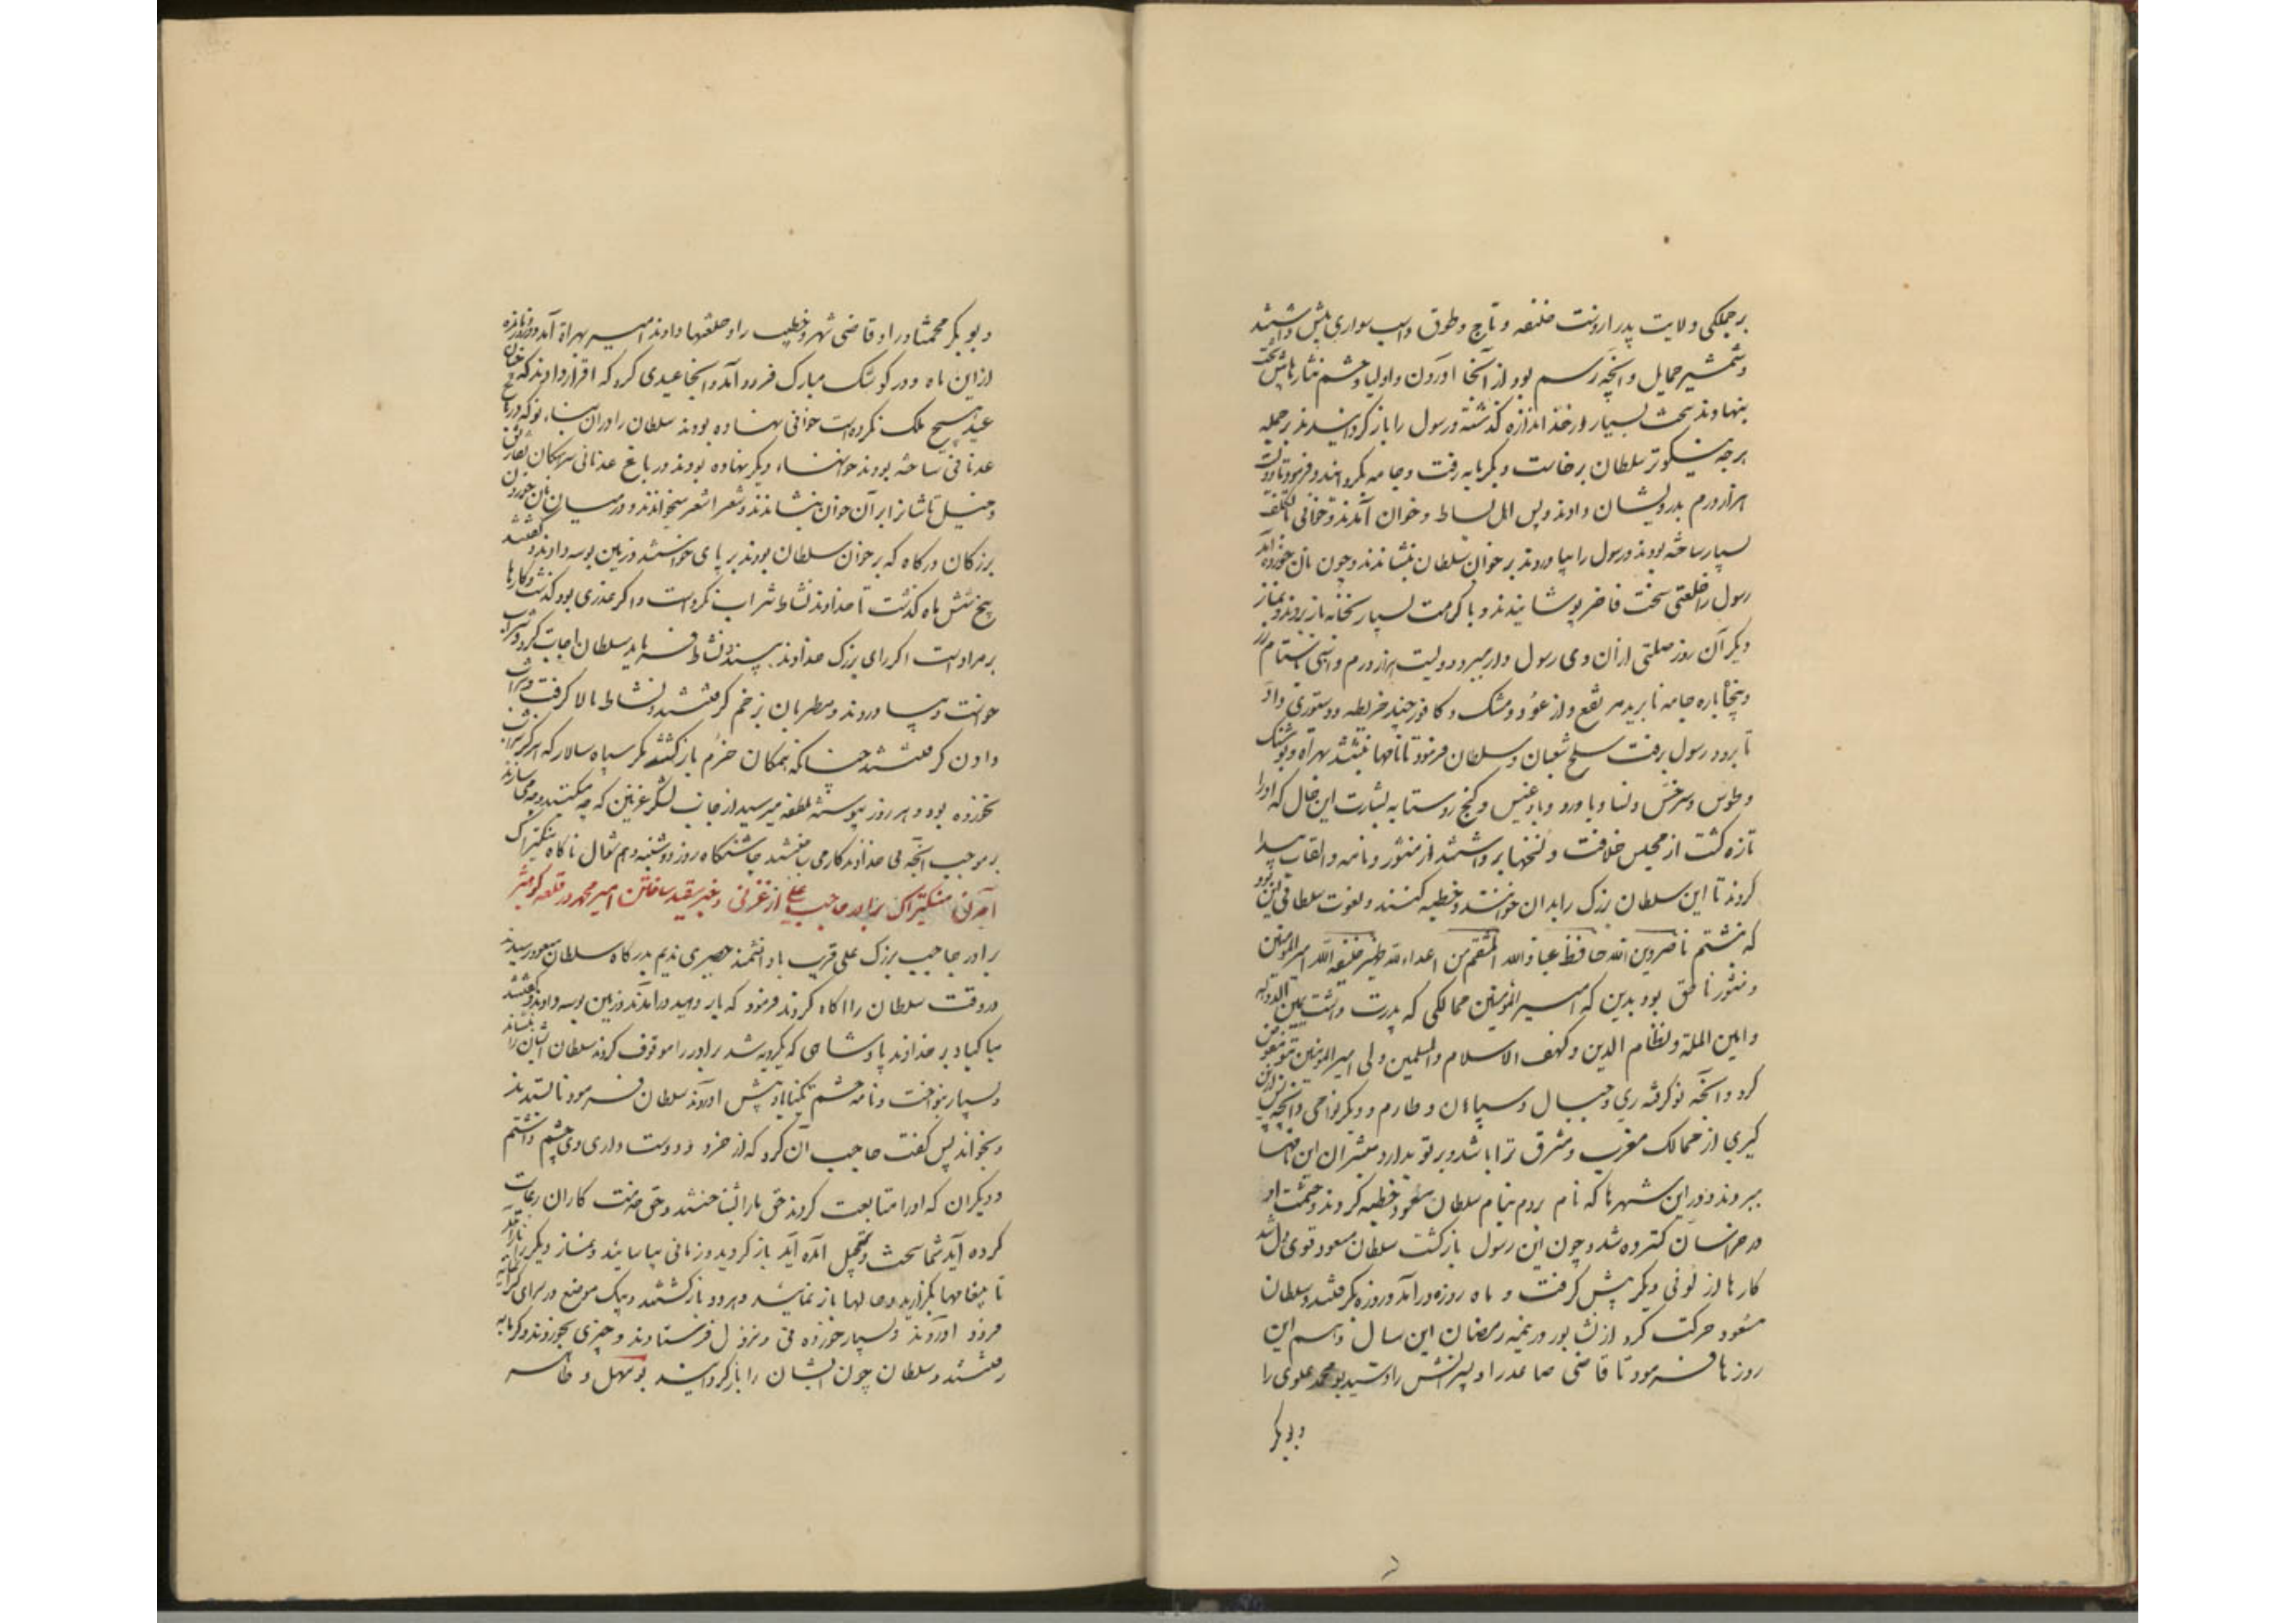 بر جملگی ولایت پدر از دست خلیفه و تاج و طوق و اسب سواری پیش داشتند
و شمشیر حمایل و آنچه رسم بود از آنجا آوردن و اولیا و حشم نثارها پیش تخت
بنهادند سخت بسیار از حد اندازه گذشته و رسول را بازگردانیدند بر جمله
هر چه نیکوتر سلطان برخاست و بگرمابه رفت و جامه بگردانید و فرمود تا دویست
هزار درم بدرویشان دادند و پس اهل بساط و خوان آمدند و خوانی با تکلف
بسیار ساخته بودند و رسول را بیاوردند بر خوان سلطان بنشاندند و چون نان خورده آمد
رسول را خلعتی سخت فاخر پوشانیدند و با کرامت بسیار بخانه باز بردند و نماز
دیگر آن روز صلتی از آن وی رسول دار ببرد دویست هزار درم و اسبی با ستام زر
و پنجاه پاره جامه نابریده مرتفع و از عود و مشک و کافور چند خریطه و دستوری داد
تا برود رسول برفت سلخ شعبان و سلطان فرمود تا نامها نبشتند بهراة و پوشنگ
و طوس و سرخس و نسا و باورد و بادغیس و گنج روستا به بشارت این حال که او را
تازه گشت از مجلس خلافت و نسختها برداشتند از منشور و نامه و القاب پیدا
کردند تا این سلطان بزرگ را بدان خوانند و خطبه کنند و نعوت سلطانی این بود
که نبشتم ناصر دین الله حافظ عباد الله المنتقم من اعداء الله ظهیر خلیفة الله امیر المؤمنین
و منشور ناطق بود بدین که امیر المؤمنین ممالکی که پدرت داشت یمین الدولة
و امین الملة و نظام الدین و کهف الاسلام و المسلمین ولی امیر المؤمنین بتو مفوض
کرد و آنچه تو گرفته ری و جبال و سپاهان و طارم و دیگر نواحی و آنچه پس ازین
گیری از ممالک مغرب و مشرق ترا باشد و بر تو بدارد مبشران این نامها
ببردند و در این شهرها که نام بردم بنام سلطان مسعود خطبه کردند و حشمت او
در خراسان گسترده شد و چون این رسول بازگشت سلطان مسعود قوی دل شد
کارها از لونی دیگر پیش گرفت و ماه روزه درآمد و روزه گرفتند و سلطان
مسعود حرکت کرد از نشابور در نیمه رمضان این سال و هم این
روزها فرمود تا قاضی صاعد را و پسرانش را و سید بو محمد علوی را
و بوبکر
و بوبکر محمشاد را و قاضی شهر و خطیب را و خلعتها دادند امیر بهراة آمد دو روز مانده
از این ماه و در کوشک مبارک فرود آمد و آنجا عیدی کرد که اقرار دادند که چنان
عید هیچ ملک نکرده است خوانی نهاده بودند سلطان را در آن بناء نو که در باغ
عدنانی ساخته بودند خوانها دیگر نهاده بودند در باغ عدنانی سرهنگان تفاریق
و خیل تاشان را بر آن خوان بنشاندند و شعرا شعر میخواندند و در میان نان خوردن
بزرگان درگاه که بر خوان سلطان بودند بر پای خواستند و زمین بوسه دادند و گفتند
پنج شش ماه گذشت تا خداوند نشاط شراب نکرده است و اگر عذری بود گذشت و کارها
بر مراد است اگر رای بزرگ خداوند بیند نشاط فرماید سلطان اجابت کرد و شراب
خواست و بیاوردند و مطربان زخم گرفتند و نشاط بالا گرفت و شراب
دادن گرفتند چنانکه همگان خرم بازگشتند مگر سپاه سالار که هرگز شراب
نخورده بود و هر روز پیوسته ملطفه میرسید از جانب لشکر غزنین که چه میکنند و چه می سازند
بر موجب آنچه می خداوند کار می باشند چاشتگاه روز دوشنبه دهم شوال ناگاه منکیتراک
آمدن منکیتراک برادر حاجب علی از غزنی و خبر مقید ساختن امیر محمد در قلعه کوهشیر
برادر حاجب بزرگ علی قریب با دانشمند حصیری ندیم بدرگاه سلطان مسعود رسیدند
در وقت سلطان را آگاه کردند فرمود که بار دهید درآمدند و زمین بوسه دادند و گفتند
مبارکباد بر خداوند پادشاهی که یکرویه شد برادر را موقوف کردند سلطان ایشان را بنشاند
و بسیار بنواخت و نامه حشم تکیناباد پیش آوردند سلطان فرمود تا بستدند
و بخواندند پس گفت حاجب آن کرد که از خرد و دوست داری وی چشم داشتم
و دیگران که او را متابعت کردند حق ما را شناختند و حق خدمت کاران رعایت
کرده آید شما سخت بتعجیل آمده اید بازگردید و زمانی بیاسایید و نماز دیگر باز آیید
تا پیغامها بگزارید و حالها باز نمایید و هر دو بازگشتند و بیک موضع در سرای گرانمایه
فرود آوردند و بسیار خوردنی و نزل فرستادند و چیزی بخوردند و گرمابه
رفتند و سلطان چون ایشان را بازگردانید بو سهل و طاهر